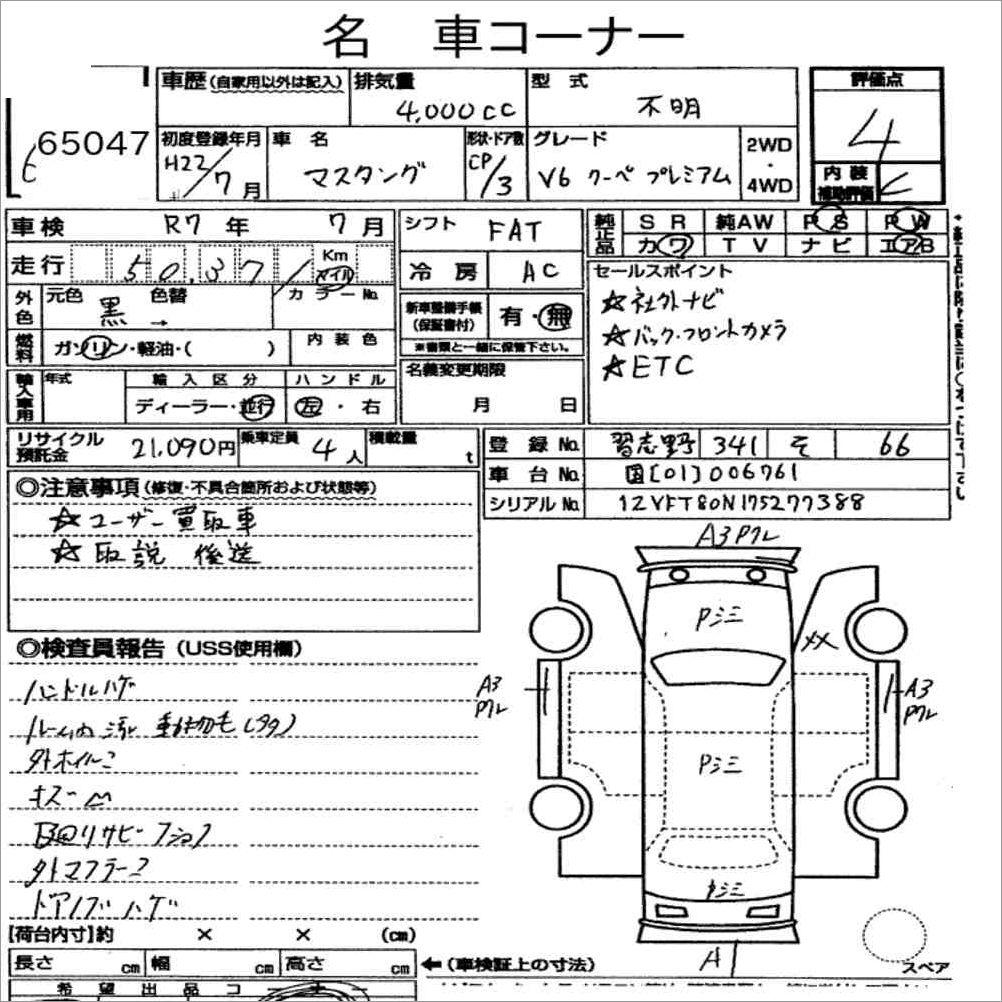 名 車コーナー
車歴(自家用以外は記入) 排気量 型 式 評価点
4,000cc 不明 4
65047
初度登録年月 車 名 形状・ドア数 グレード 2WD・4WD
H22/7月 マスタング CP/3 V6 クーペ プレミアム
内装補助評価
車検 R7年 7月
シフト FAT
純正品 SR 純AW PS PW
カワ TV ナビ エアB
走行 50,371 Km マイル
冷房 AC
セールスポイント
外色 元色 黒 色替 → カラーNo.
新車整備手帳(保証書付) 有・無
※書類と一緒に保管下さい。
☆社外ナビ
☆バック・フロントカメラ
☆ETC
燃料 ガソリン・軽油・( ) 内装色
輸入車用 年式 輸入区分 ハンドル
ディーラー・並行 左・右
名義変更期限
月 日
リサイクル預託金 21,090円 乗車定員 4人 積載量 t
登録No. 習志野 341 そ 66
車台No. 国[01]006761
シリアルNo. 1ZVFT80N175277388
◎注意事項(修復・不具合箇所および状態等)
☆ユーザー買取車
☆取説 後送
A3 Pクレ
Pシミ
XX
◎検査員報告(USS使用欄)
ハンドルハゲ
A3 Pクレ
A3 Pクレ
Pシミ
外ホイルコ
キズ
外マフラーコ
ドアノブハゲ
A1
【荷台内寸】約 × × (cm)
長さ cm 幅 cm 高さ cm ←(車検証上の寸法)
スペア
希望出品コーナー